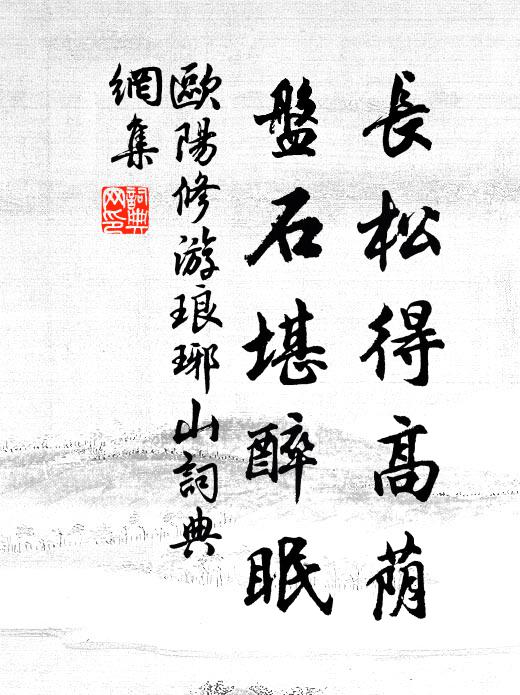 長松得高蔭
盤石堪醉眠
歐陽修游琅琊山詞典
網集
詞典
网印